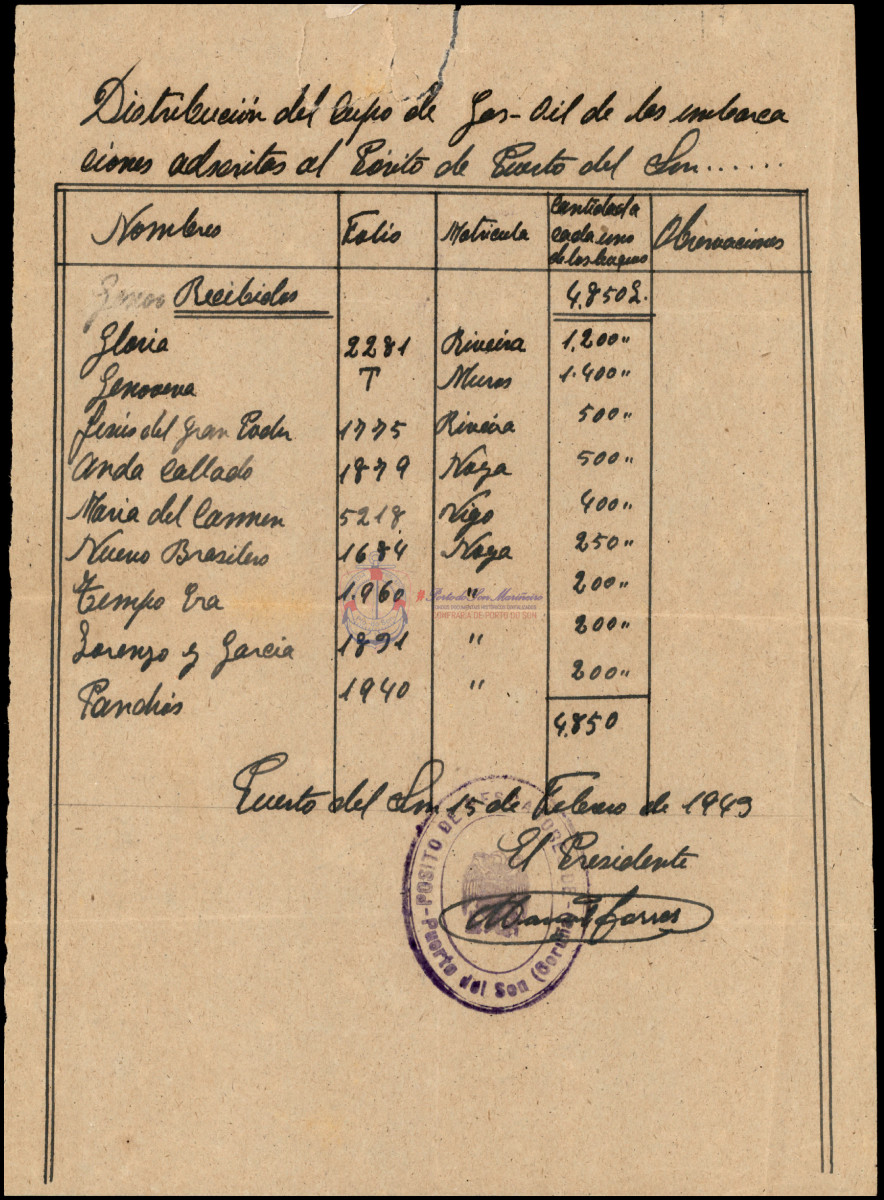 Distribución del Cupo de Gas-Oil de las embarca
ciones adscritas al Pósito de Puerto del Son......
Nombres Folio Matricula Cantidad a cada uno de los buques Observaciones
Recibidos 4.850 L.
Gloria 2281 Riveira 1.200 "
Genoveva T Muros 1.400 "
Jesús del Gran Poder 1775 Riveira 500 "
Anda Callado 1879 Noya 500 "
Maria del Carmen 5218 Vigo 400 "
Nuevo Brasilero 1684 Noya 250 "
Tempo Era 1.960 " 200 "
Lorenzo y Garcia 1891 " 200 "
1940 " 200 "
4.850
Puerto del Son 15 de Febrero de 1943
El Presidente
POSITO DE PESCADORES DE
Puerto del Son (Coruña)
#PortodoSon Mariñeiro
CONFRARIA DE PORTO DO SON